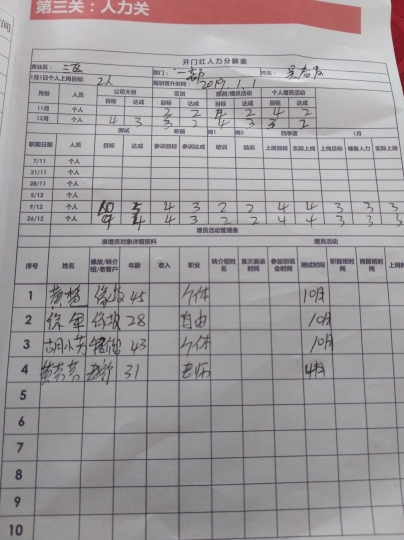 第三关：人力关
开门红人力分解表
营业区： 二区 部门： 一部 姓名：
1月1日个人上岗目标： 2人 规划晋升时间： 2019.1.1
月份 人员 公司大创 区创 部创/增员活动 个人增员活动
目标 达成 目标 达成 目标 达成 目标 达成
11月 个人 3 2 4 2 4 2
12月 个人 4 3 3 2 4 3 3 2
测试 职前 岗1 岗2 四季度 1月
职前日期 人员 目标 达成 参训目标 参训达成 培训 培训 上岗目标 实际上岗 上岗目标 储备人力 实际上岗
7/11 个人
21/11 个人
28/11 个人
5/12 个人
9/12 个人 10 5 4 3 2 2 4 4 3 3 3
26/12 个人 9 4 4 3 2 2 4 4 3 3 3
增员活动管理表
准增员对象详细资料 增员活动
序号 姓名 缘故/转介绍/老客户 年龄 收入 职业 转介绍姓名 首次面谈时间 参加创说会时间 测试时间 职前班时间 岗前班时间 上岗时间
1 黄梦 缘故 45 个体 10月
2 徐 缘故 28 自由 10月
3 胡小芳 缘故 43 个体 10月
4 黄 31 老师
5
6
7
8
9
10